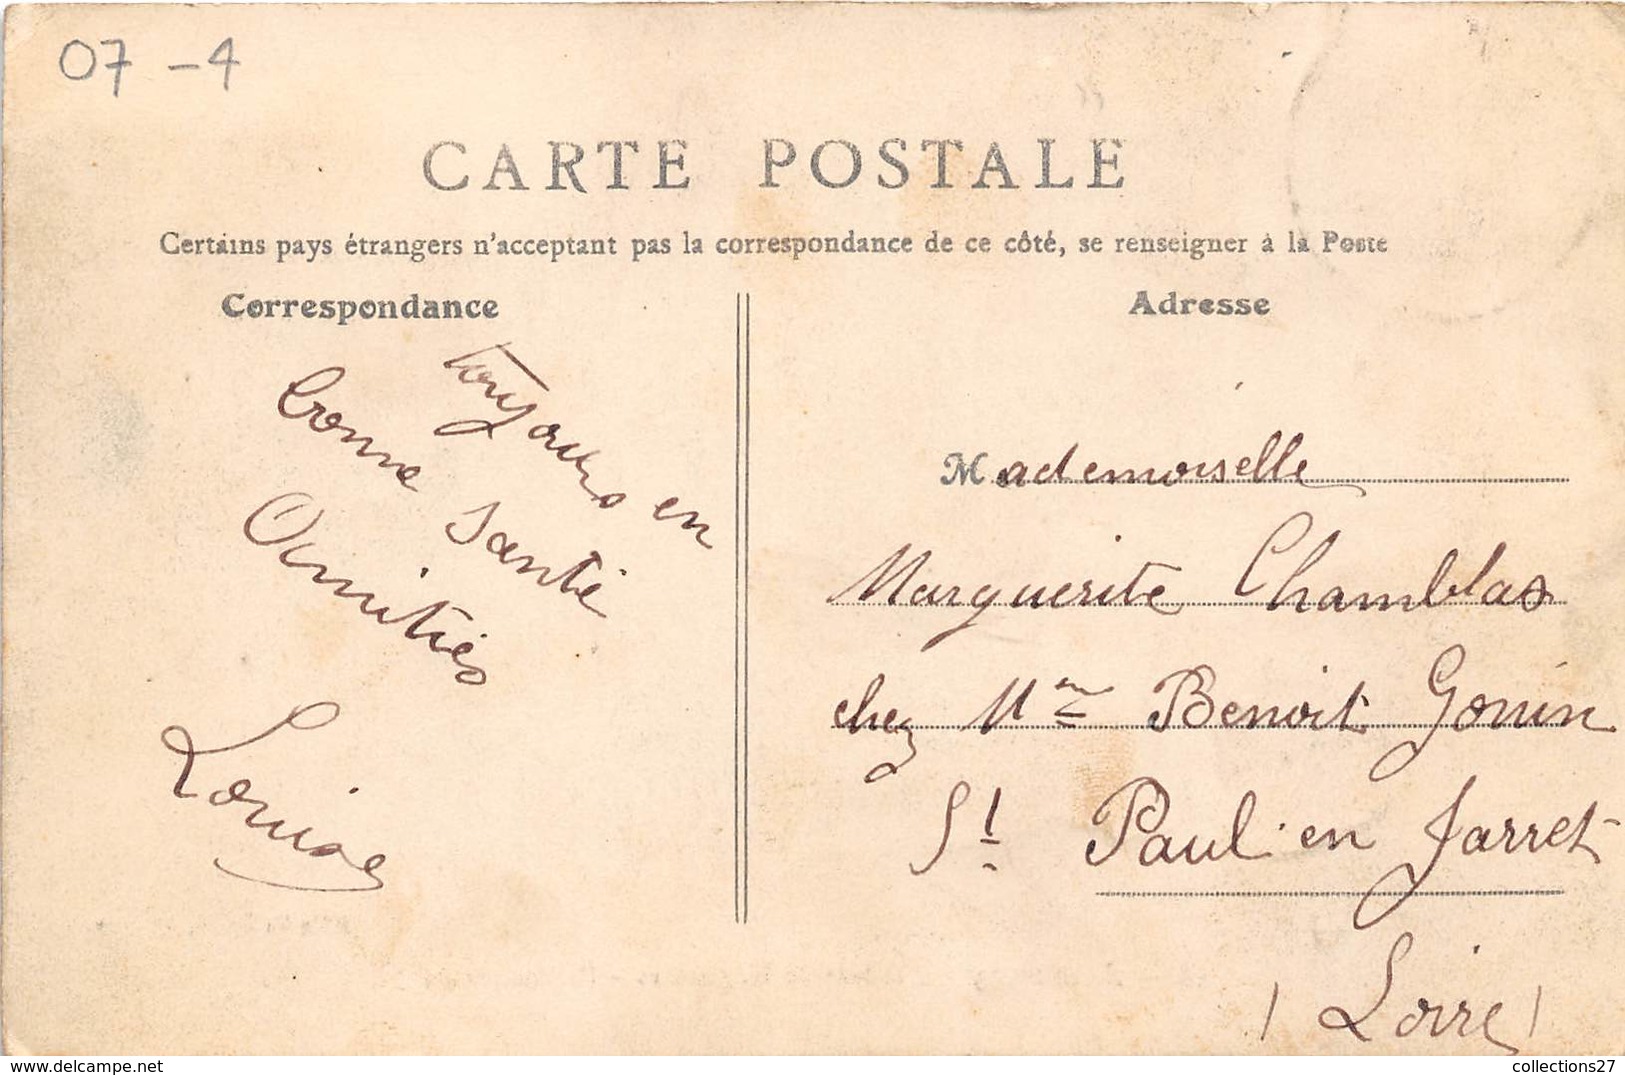 07 - 4
CARTE POSTALE
Certains pays étrangers n'acceptant pas la correspondance de ce côté, se renseigner à la Poste
Correspondance
Toujours en
bonne santé
Amitiés
Louise
Adresse
Mademoiselle
Marguerite Chamblas
chez Mme Benoit Gonin
St Paul en Jarret
(Loire)
collections27